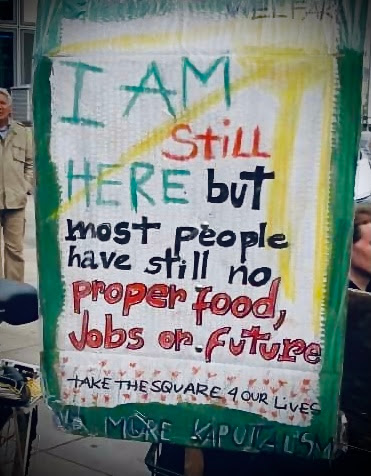 WELFARE
I AM
Still
HERE but
most people
have still no
proper food,
Jobs or future
TAKE THE SQUARE 4 OUR LIVES
NO MORE KAPUTALISM